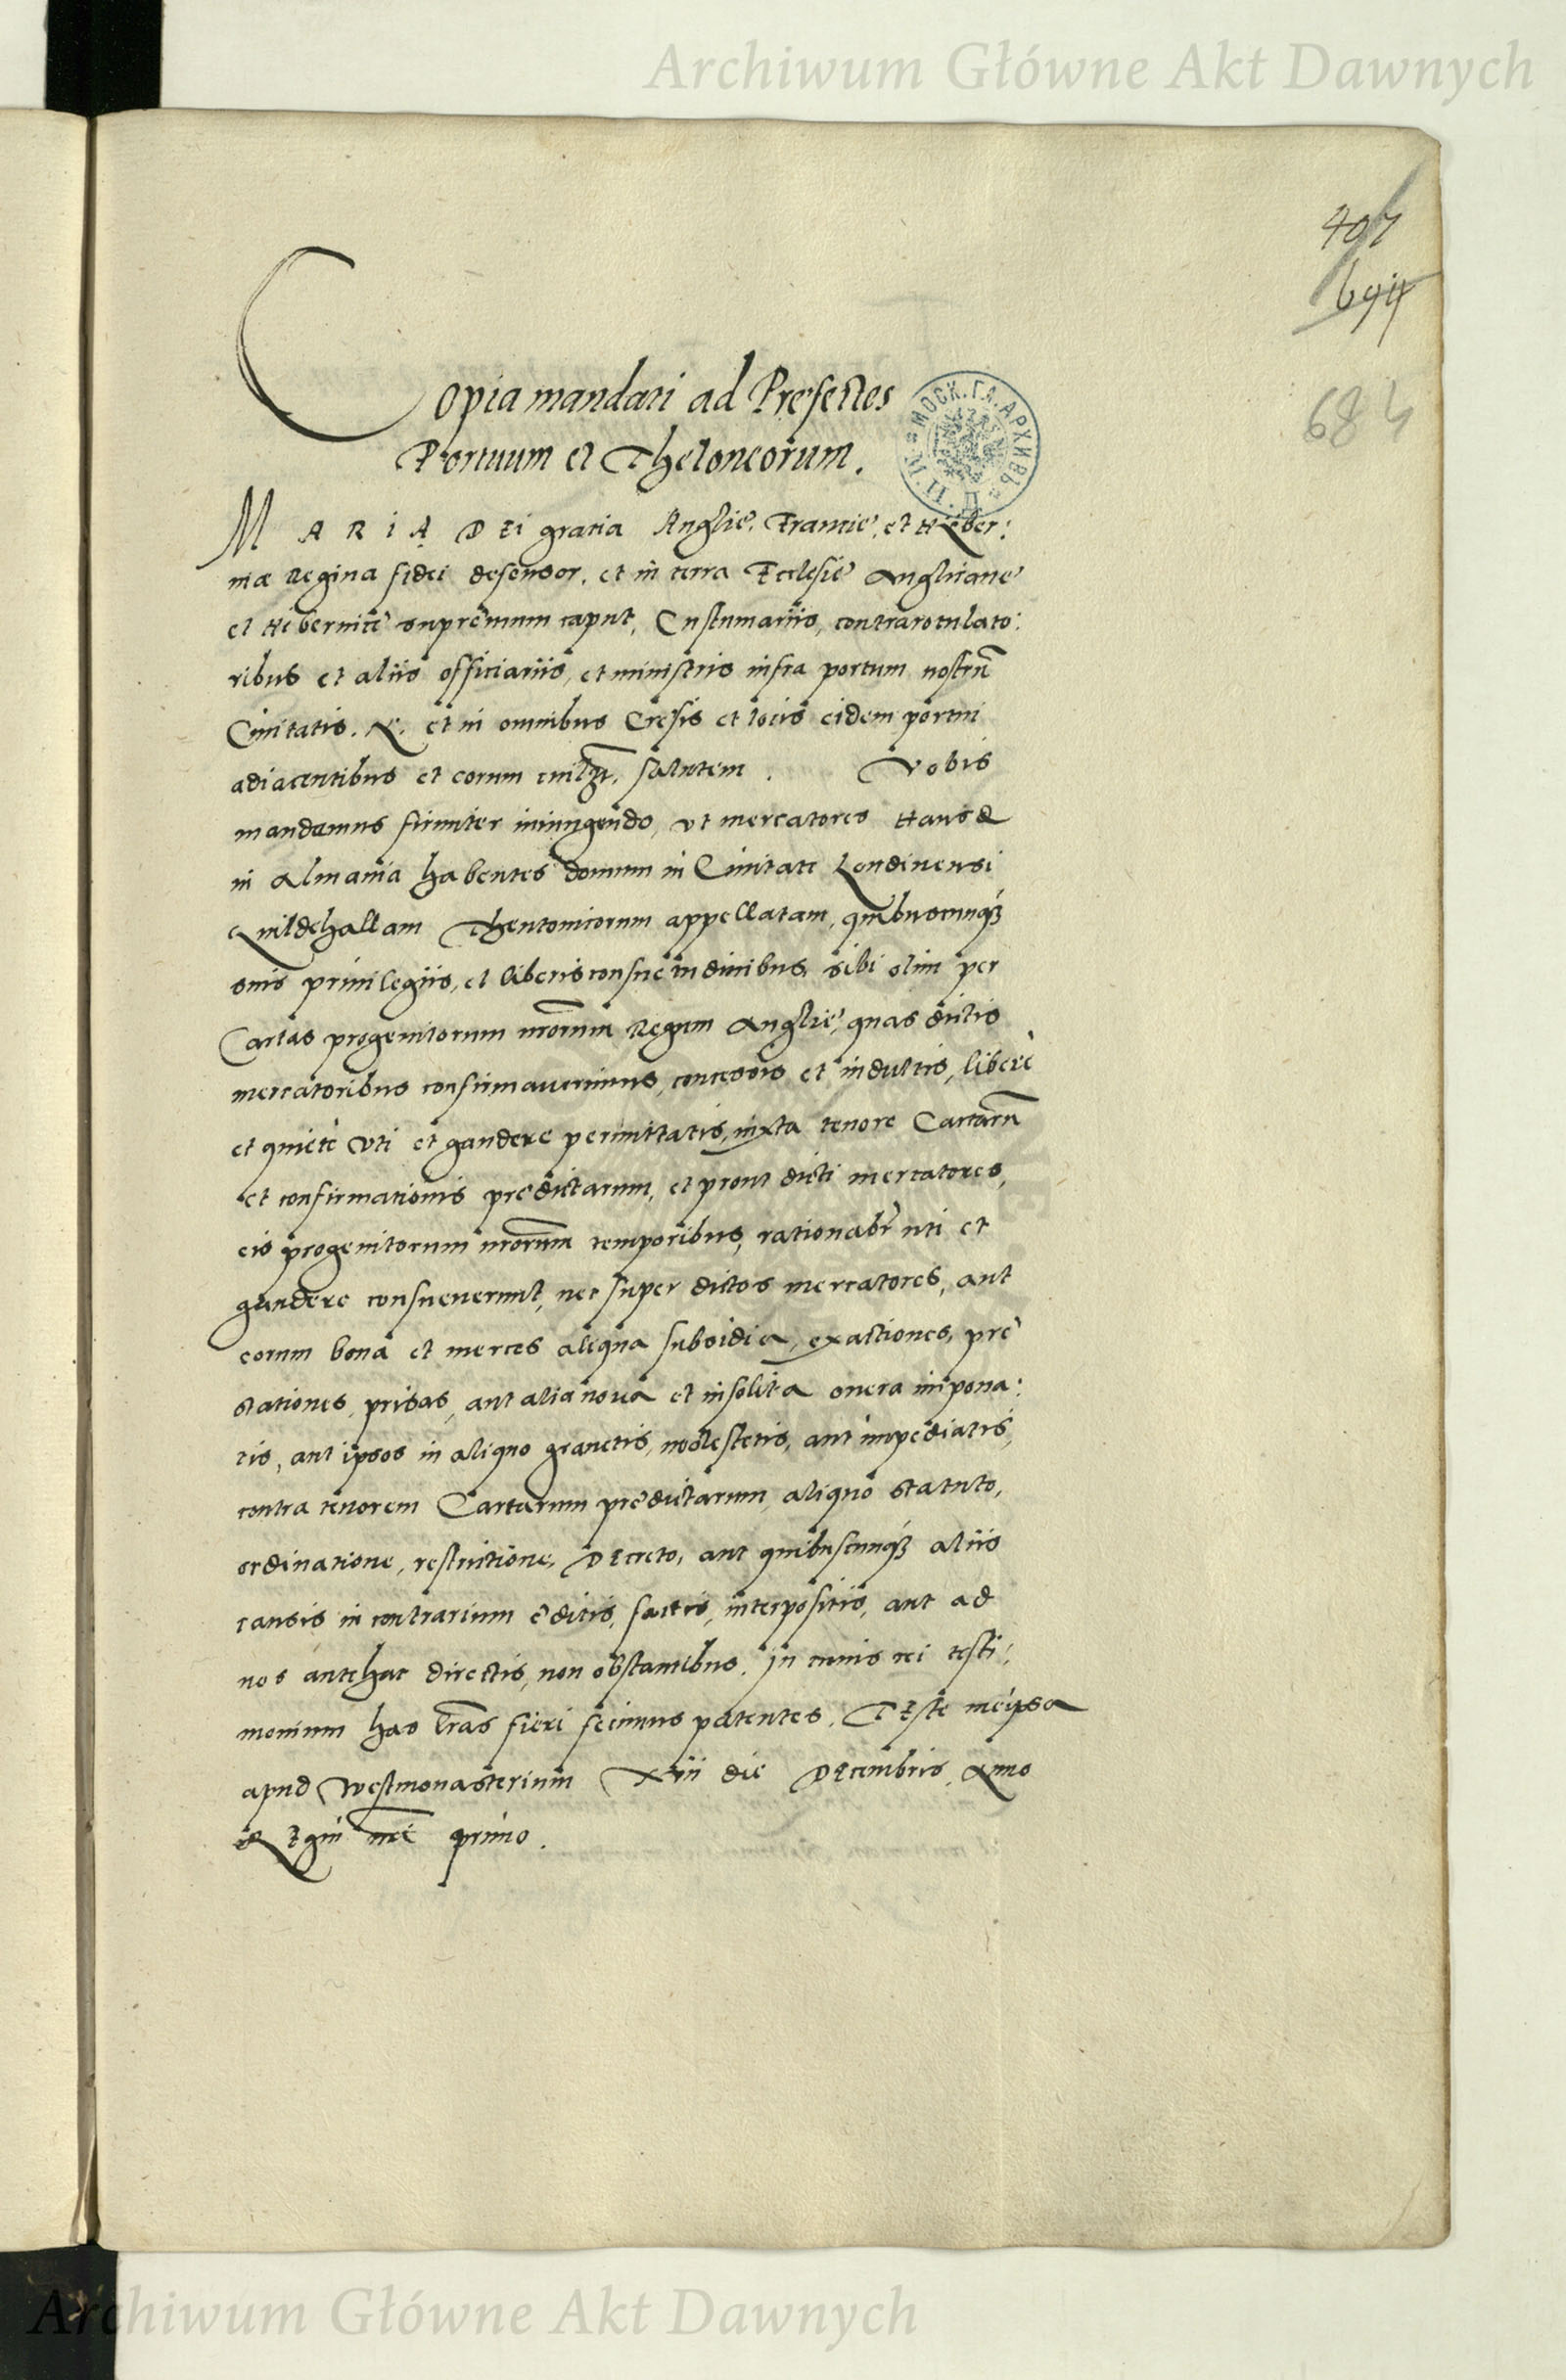 Archiwum Główne Akt Dawnych
407
694
684
Copia mandati ad Prefectos
Portuum et Theloneorum.
МОСК. ГЛ. АРХИВЪ
MARIA DEI gratia Anglię, Francię, et Hiber:
niæ Regina fidei defensor, et in terra Ecclesię Anglicanę
et Hibernicę supremum caput, Custumariis, contrarotulato:
ribus et aliis officiariis, et ministris infra portum nostrū
Civitatis. &. et in omnibus Cresis et locis eidem portui
adiacentibus et eorum cuilꝫt, salutem. Vobis
mandamus firmiter iniungendo, ut mercatores Hansæ
in Almania habentes domum in Civitate Londinensi
Guildehallam Theutonicorum appellatam, quibuscunqꝫ
suis privilegiis, et liberis consuetudinibus, sibi olim per
Cartas progenitorum nrorum Regum Anglię, quas dictis
mercatoribus confirmaverimus, concessis et indultis, liberè
et quietè uti et gaudere permittatis, iuxta tenore Cartarū
et confirmationis prędictarum, et prout dicti mercatores,
eis progenitorum nrorum temporibus, rationabr uti et
gaudere consueverunt, nec super dictos mercatores, aut
eorum bona et merces aliqua subsidia, exactiones, prę
stationes, prisas, aut alia nova et insolita onera impona:
tis, aut ipsos in aliquo gravetis, molestetis, aut impediatis,
contra tenorem Cartarum prędictarum, aliquo statuto,
ordinatione, restrictione, Decreto, aut quibuscunqꝫ aliis
causis in contrarium ęditis, factis, interpositis, aut ad
vos antehac directis, non obstantibus. In cuius rei testi:
monium has lras fieri fecimus patentes. TEste meipsa
apud Westmonasterium Xiii die DEcembris, Anno
REgni nri primo.
Archiwum Główne Akt Dawnych